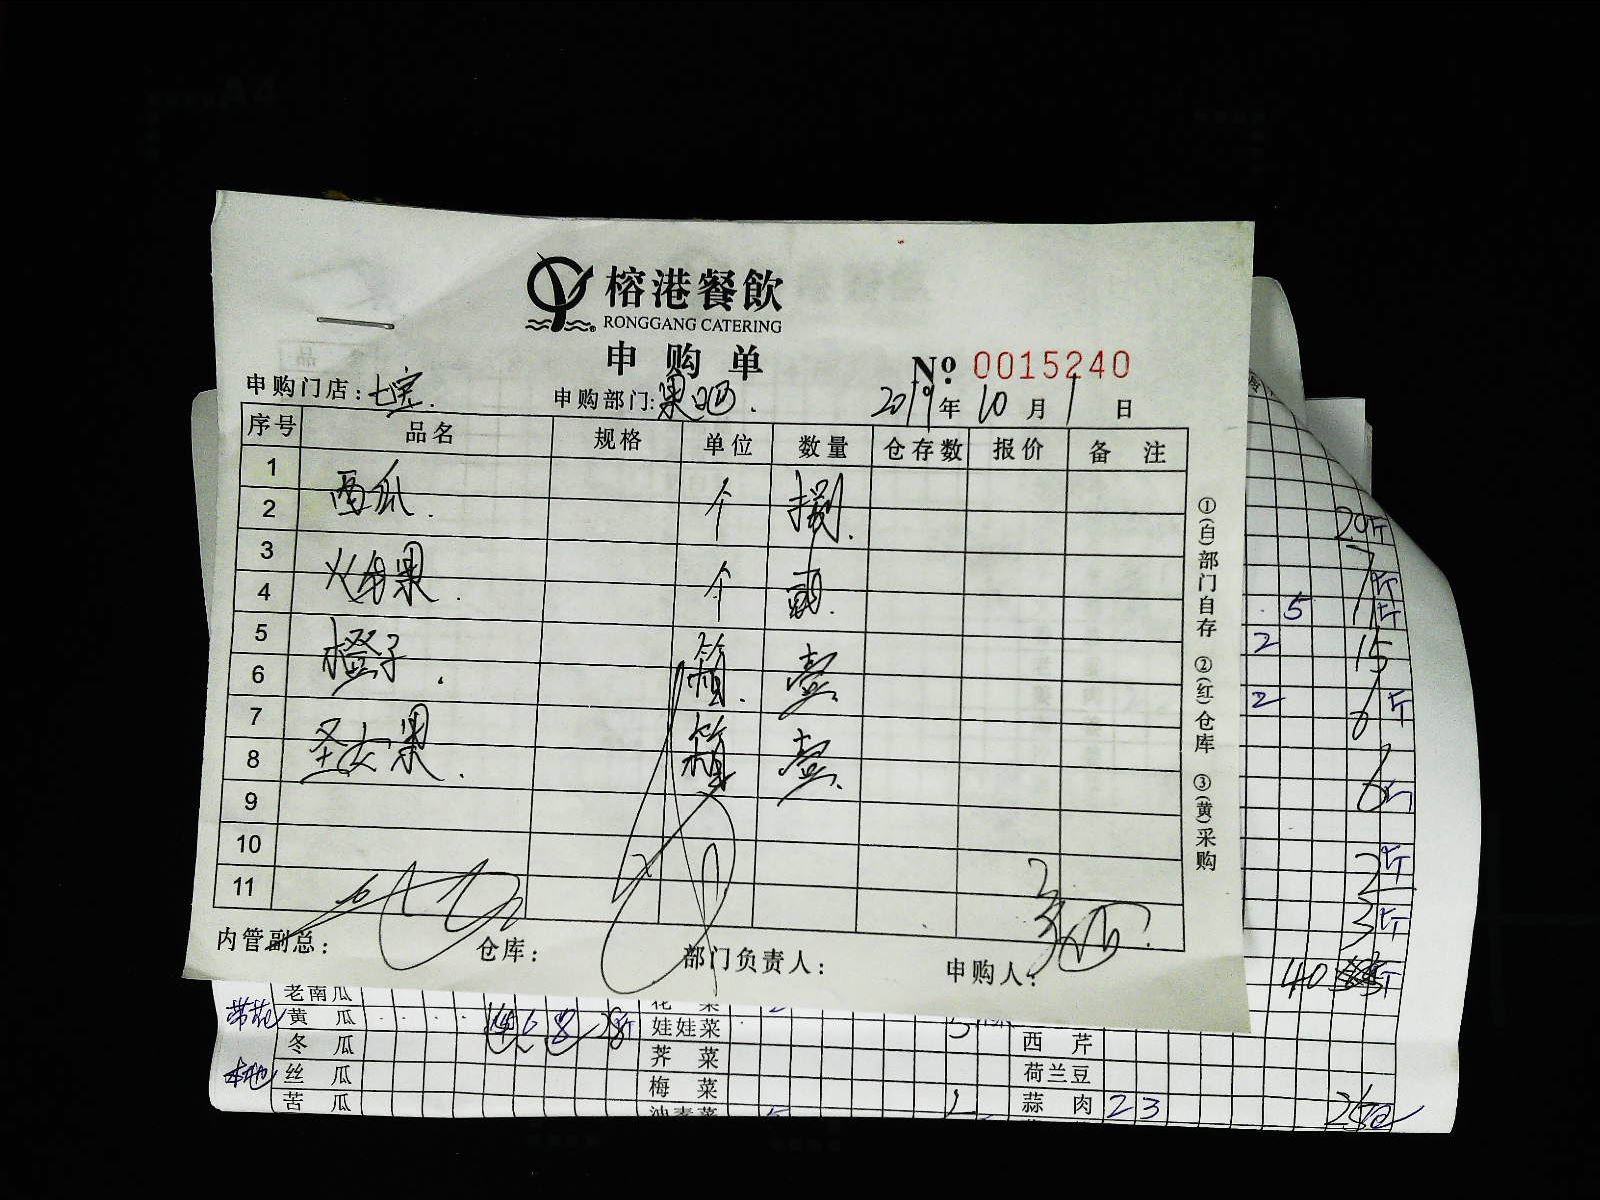 榕港餐飲
RONGGANG CATERING
申购单
No. 0015240
申购门店：七宝. 申购部门：果吧. 2019年10月1日
序号 品名 规格 单位 数量 仓存数 报价 备 注
1
西瓜. 个 捌.
2
3
火龙果. 个 贰.
4
5
橙子. 箱. 壹.
6
7
圣女果. 箱 壹.
8
9
10
11
内管副总： 仓库： 部门负责人： 申购人：
①(白)部门自存 ②(红)仓库 ③(黄)采购
20斤
7斤
5
2 15
2 6斤
6斤
2斤
3斤
40
老南瓜 花 菜
黄 瓜 娃娃菜 5 西 芹
冬 瓜 荠 菜 荷兰豆
本地 丝 瓜 梅 菜 蒜 肉 2 3
苦 瓜 油麦菜